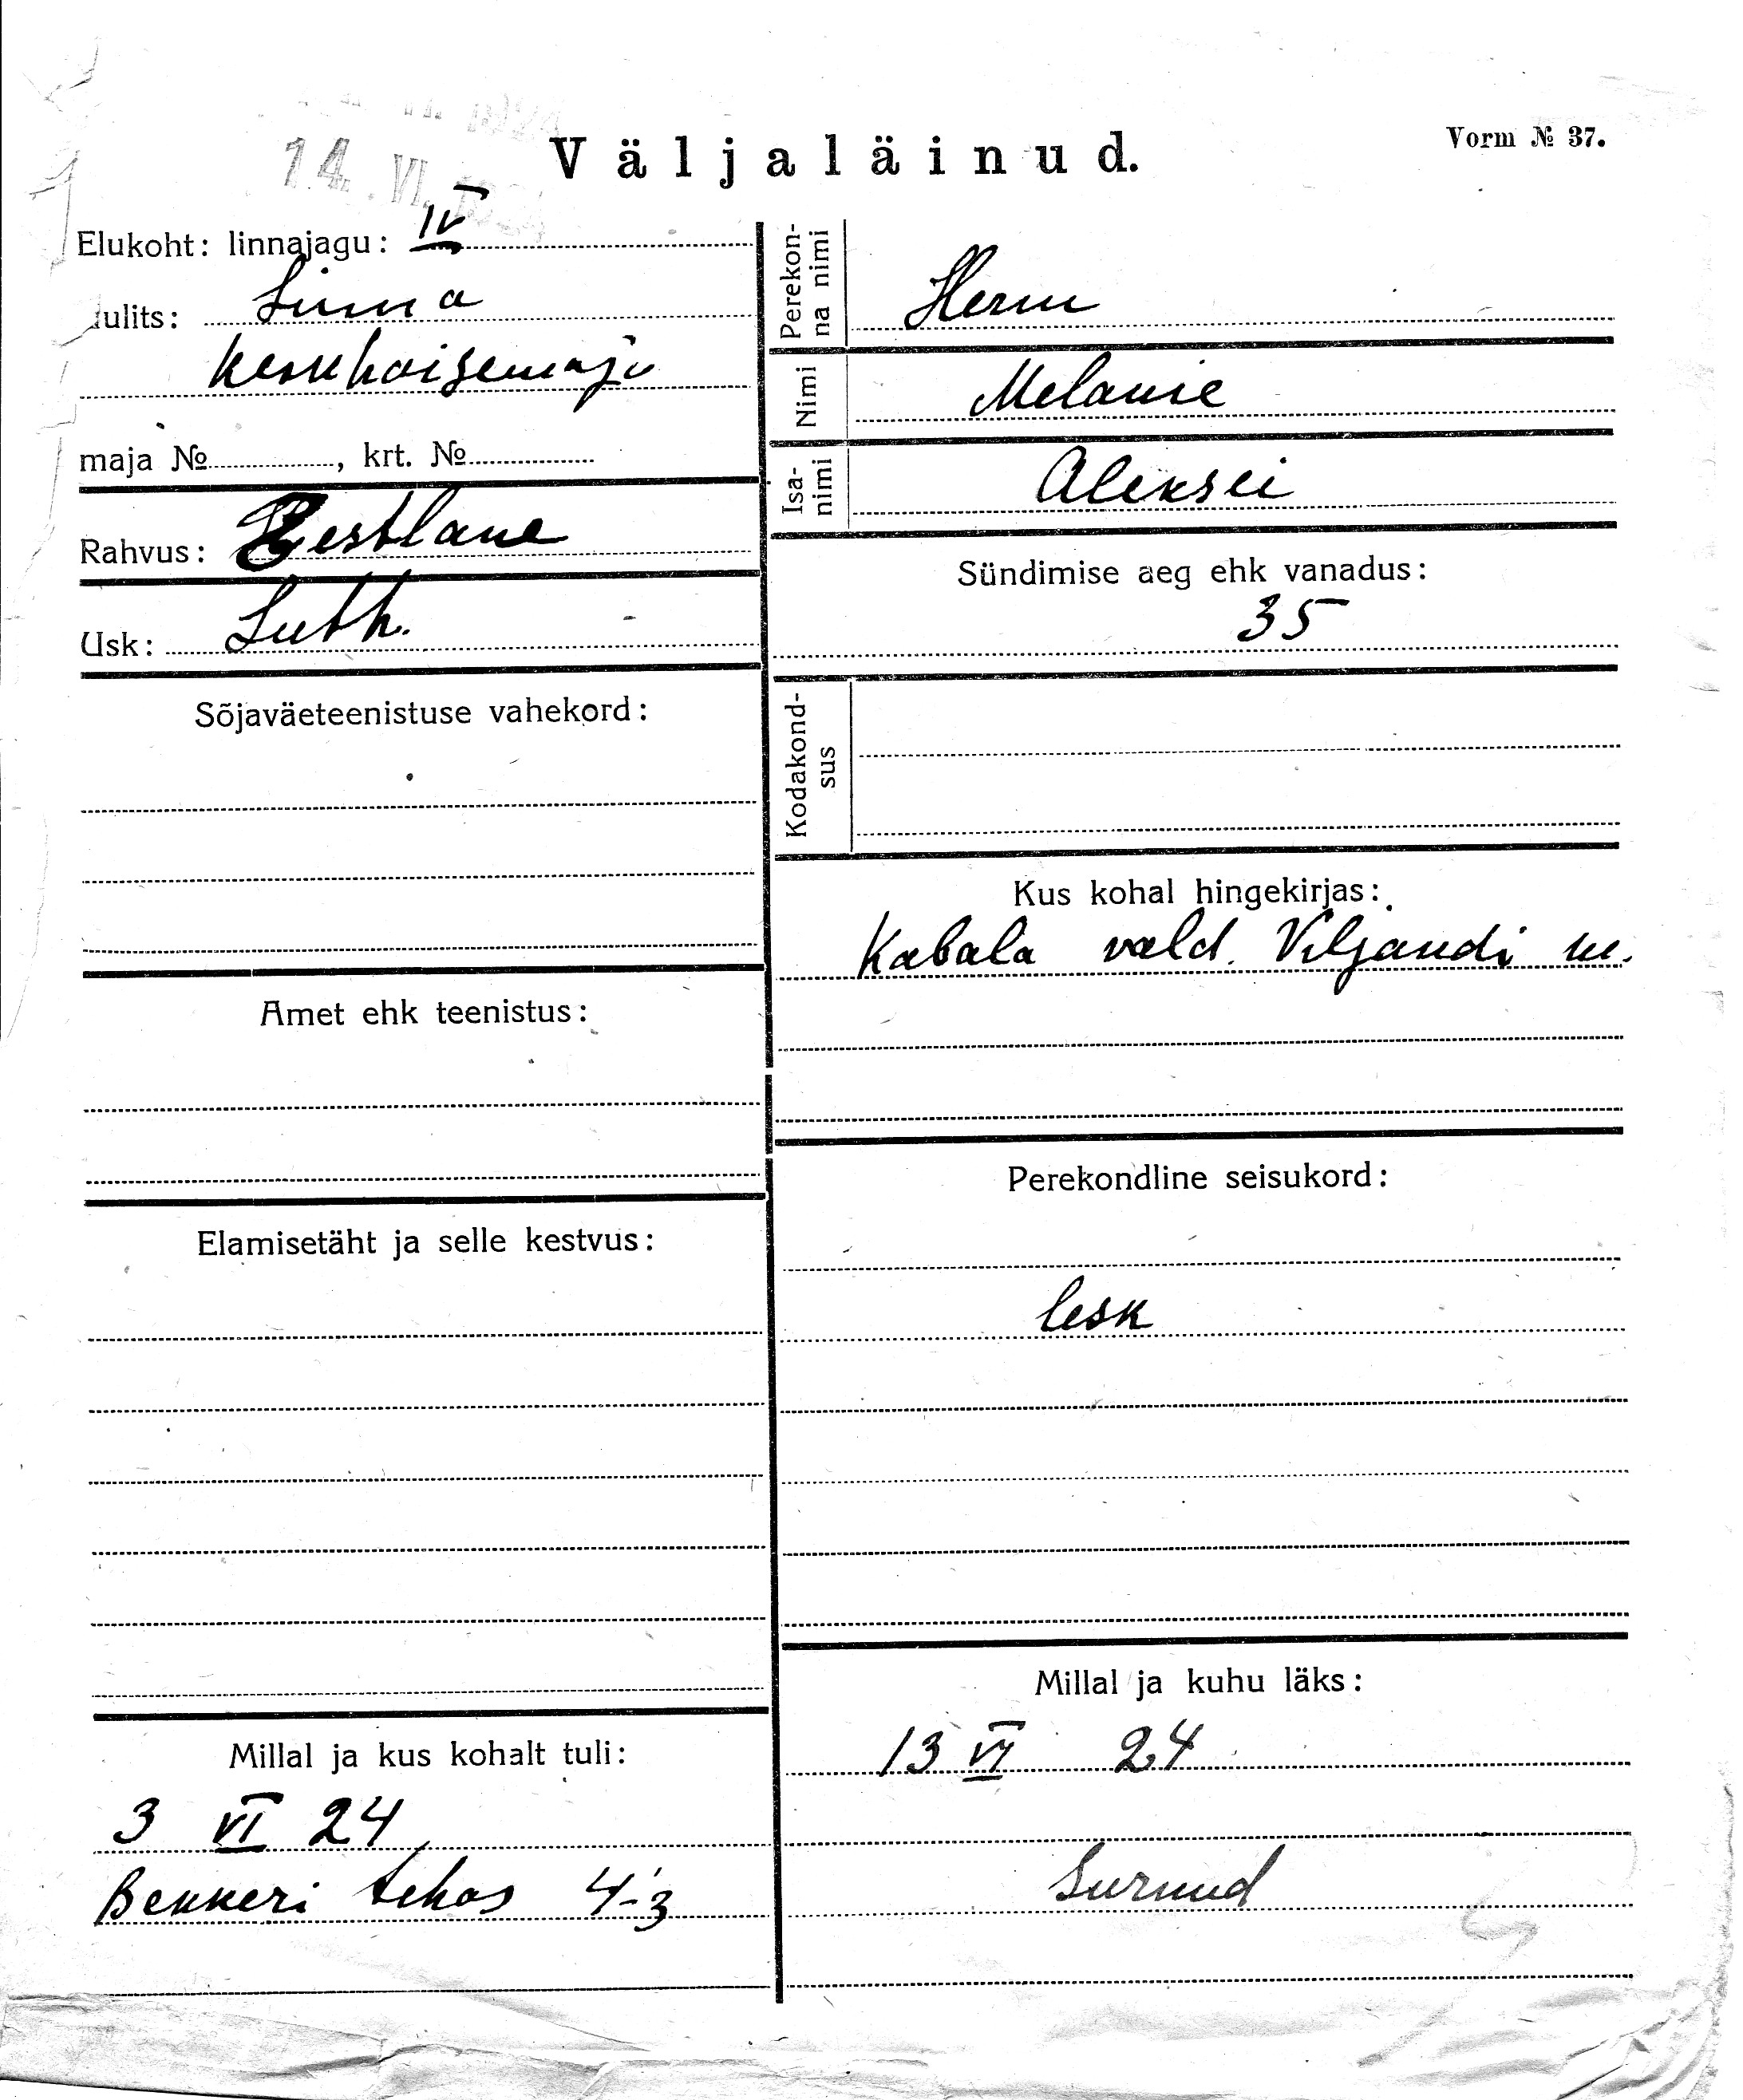 14. VI. 1924
Väljaläinud.
Vorm № 37.
Elukoht: linnajagu: IV
uulits: Linna
keskhaigemaja
maja №, krt. №
Rahvus: Eestlane
Usk: Luth.
Sõjaväeteenistuse vahekord:
Amet ehk teenistus:
Elamisetäht ja selle kestvus:
Millal ja kus kohalt tuli:
3 VI 24
Bekkeri tehas 4-3
Perekon-
na nimi
Herm
Nimi
Melanie
Isa-
nimi
Aleksei
Sündimise aeg ehk vanadus:
35
Kodakond-
sus
Kus kohal hingekirjas:
Kabala vald. Viljandi m.
Perekondline seisukord:
lesk
Millal ja kuhu läks:
13 VI 24
Surnud